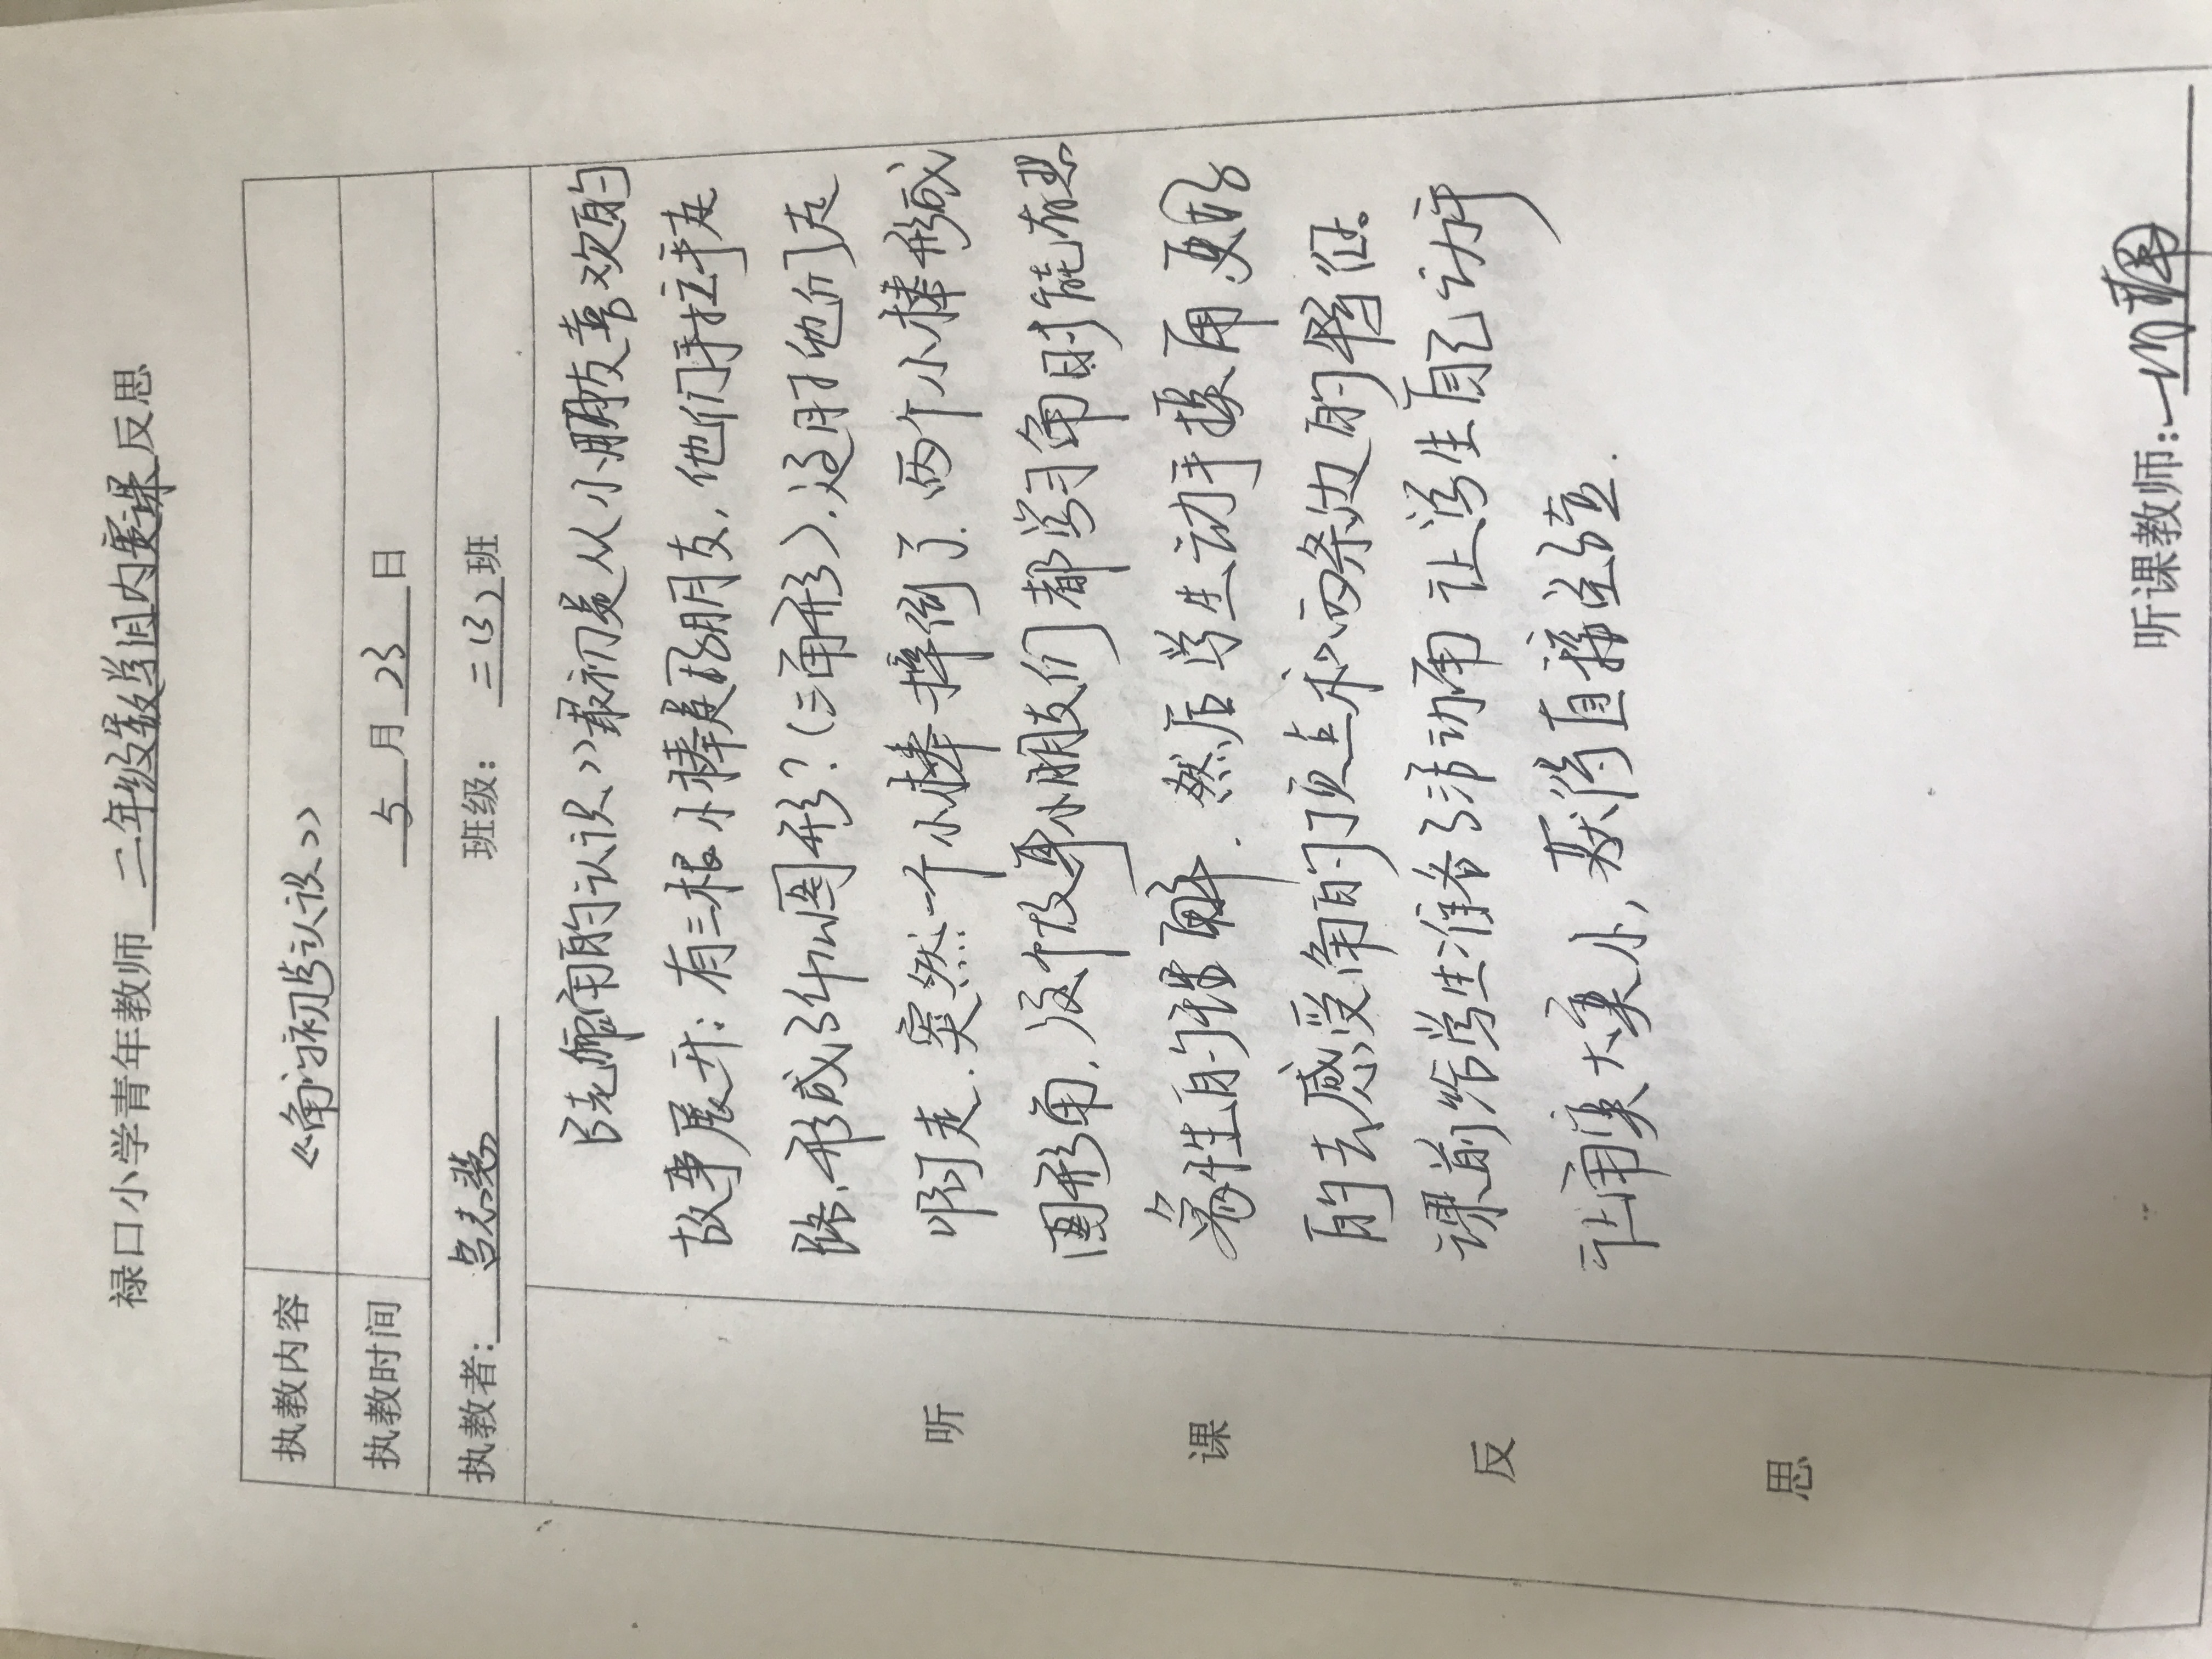 禄口小学青年教师 二年级数学组内赛课 反思
执教内容 《角的初步认识》
执教时间 5 月 23 日
执教者: 班级: 二(3) 班
老师角的认识》最初是从小朋友喜欢的
故事展开:有三根小棒是好朋友,他们手拉手走
路,形成了什么图形?(三角形),这时他们走
啊走,突然一个小棒摔倒了.两个小棒形成
图形角,这个故事小朋友们都学习角时能有思
象性的理解.然后学生动手摸角,更好
的去感受角的顶点和两条边的特征。
课前给学生准备了活动角 让学生自己动手
让角变大变小,获得直接经验.
听
课
反
思
听课教师: